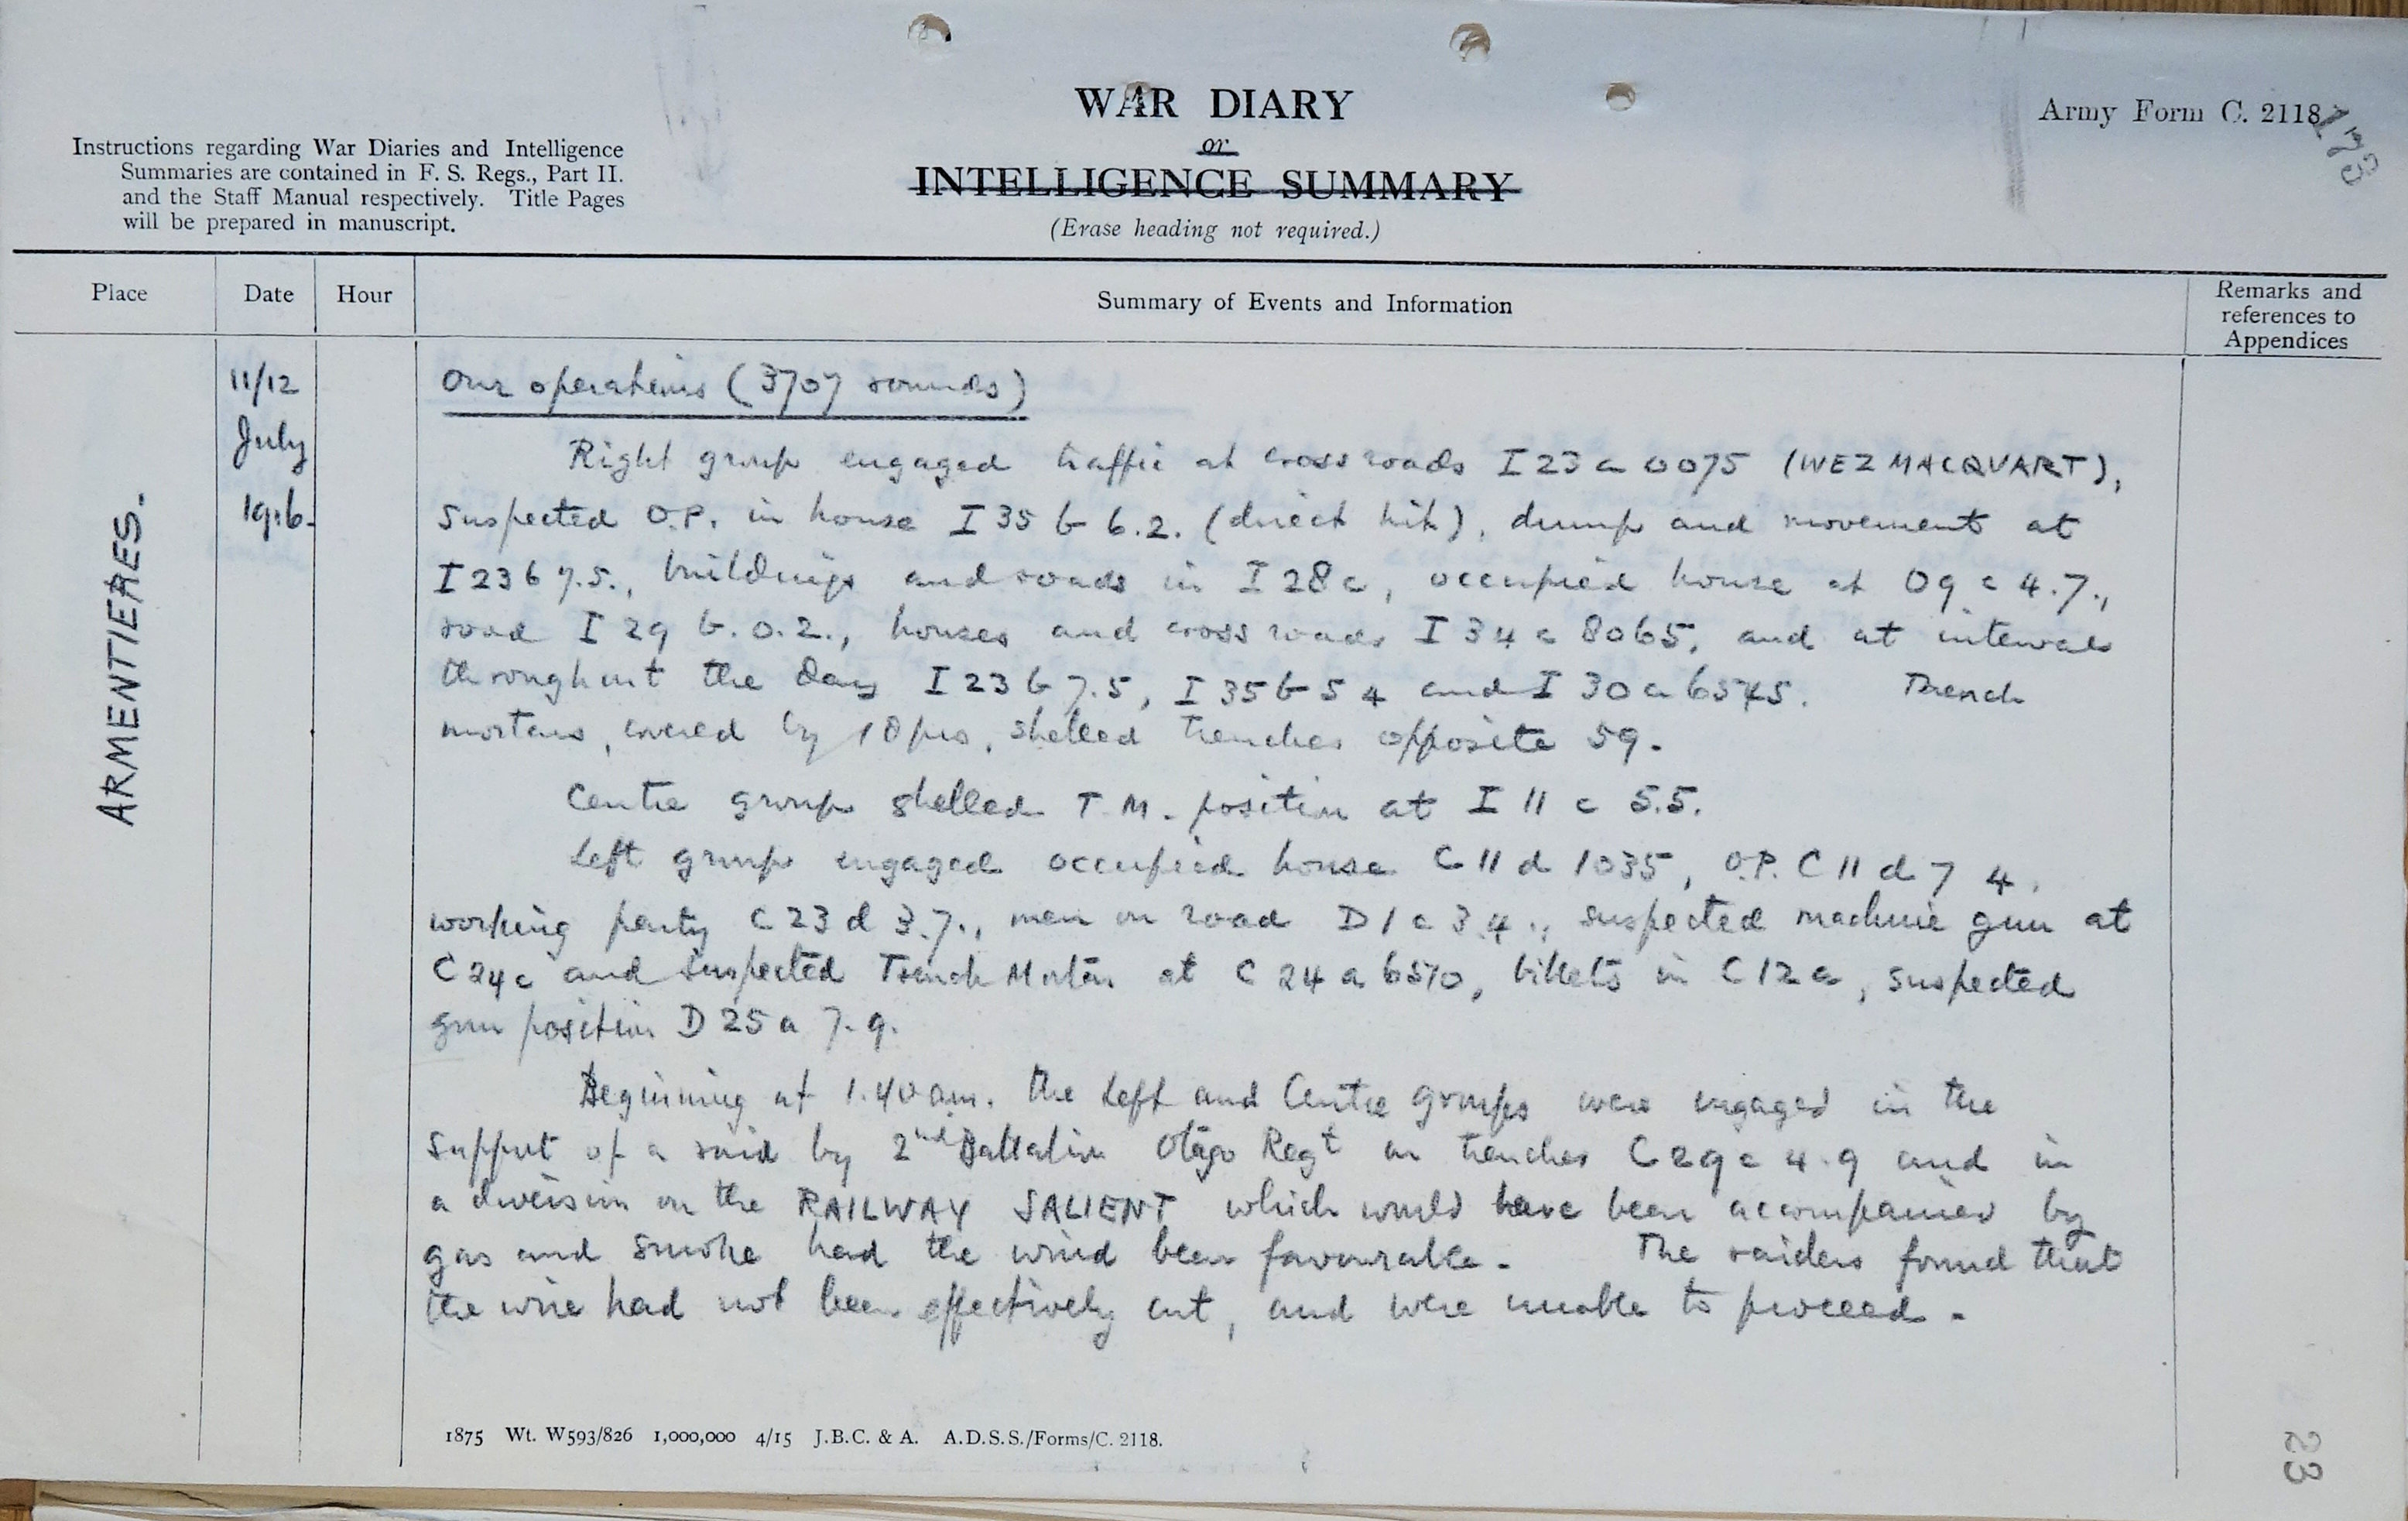 WAR DIARY
or
INTELLIGENCE SUMMARY
(Erase heading not required.)
Army Form C. 2118
175
Instructions regarding War Diaries and Intelligence
Summaries are contained in F. S. Regs., Part II.
and the Staff Manual respectively. Title Pages
will be prepared in manuscript.
Place
Date
Hour
Summary of Events and Information
Remarks and
references to
Appendices
ARMENTIERES.
11/12
July
1916.
Our operations (3707 rounds)
Right group engaged traffic at cross roads I 23 a 0075 (WEZ MACQUART),
suspected O.P. in house I 35 b 6.2. (direct hit), dump and movement at
I 23 b 7.5., buildings and roads in I 28 c, occupied house at O 9 c 4.7.,
road I 29 b. 0.2., houses and cross roads I 34 c 8065, and at intervals
throughout the day I 23 b 7.5, I 35 b 5 4 and I 30 a 6545. Trench
mortars, covered by 18 prs, shelled trenches opposite 59.
Centre group shelled T.M. position at I 11 c 5.5.
Left group engaged occupied house C 11 d 1035, O.P. C 11 d 7 4,
working party C 23 d 3.7., men on road D 1 c 3.4., suspected machine gun at
C 24 c and suspected Trench Mortar at C 24 a 6510, billets in C 12 a, suspected
gun position D 25 a 7.9.
Beginning at 1.40 am. the Left and Centre groups were engaged in the
support of a raid by 2nd Battalion Otago Regt on trenches C 29 c 4.9 and in
a diversion on the RAILWAY SALIENT which would have been accompanied by
gas and smoke had the wind been favourable. The raiders found that
the wire had not been effectively cut, and were unable to proceed.
1875 Wt. W593/826 1,000,000 4/15 J.B.C. & A. A.D.S.S./Forms/C. 2118.
23